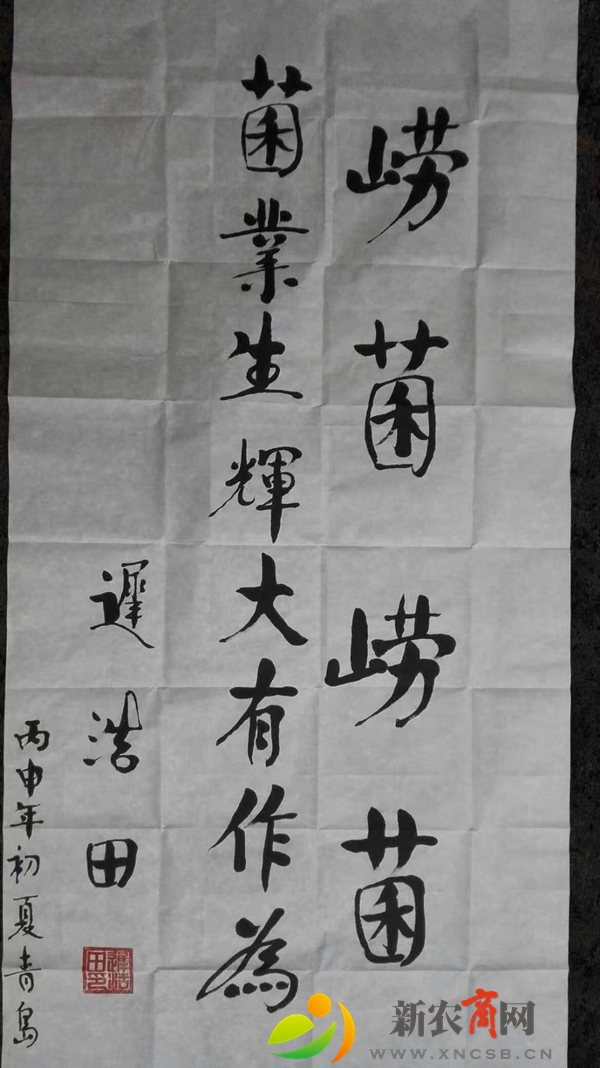 崂菌崂菌
菌業生輝大有作為
遲浩田
丙申年初夏青島
遲浩田印
新农商网
WWW.XNCSB.CN